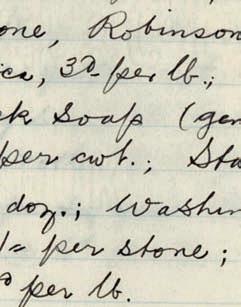 one, Robinson
ica, 3d per lb.;
ck Soap (gen
per cwt.; Sta
doz.; Washin
/= per stone;
d per lb.